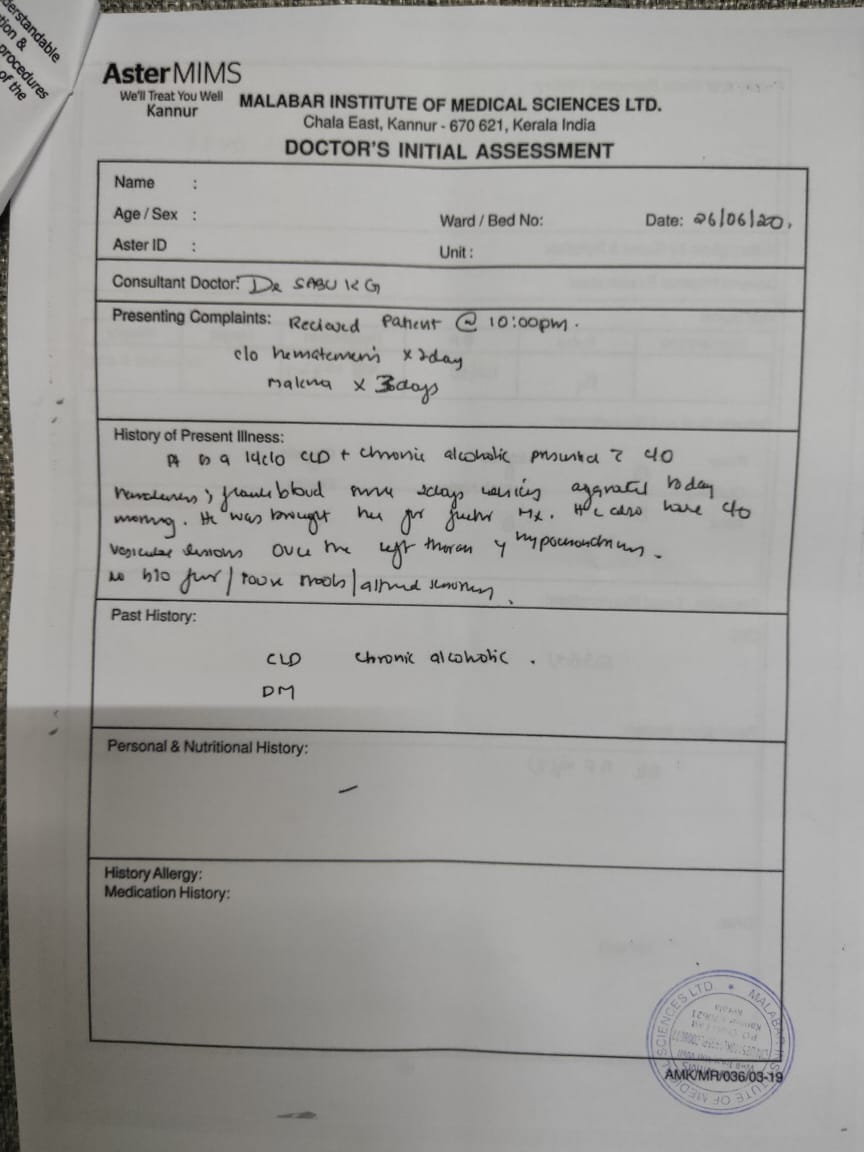 derstandable
tion &
procedures
of the
AsterMIMS
We'll Treat You Well
Kannur
MALABAR INSTITUTE OF MEDICAL SCIENCES LTD.
Chala East, Kannur - 670 621, Kerala India
DOCTOR'S INITIAL ASSESSMENT
Name :
Age / Sex : Ward / Bed No: Date: 26/06/20.
Aster ID : Unit :
Consultant Doctor: Dr SABU K G
Presenting Complaints: Recieved Patient @ 10:00pm.
c/o hematemesis x 2day
malena x 3days
History of Present Illness:
Pt is a k/c/o CLD + chronic alcoholic presented c c/o
blood since 2days aggravated today
morning. He was brought here for further Mx. He also have c/o
vesicular lesions over the left thorax hypochondrium.
no h/o / / altered sensorium.
Past History:
CLD chronic alcoholic.
DM
Personal & Nutritional History:
—
History Allergy:
Medication History:
MALABAR INSTITUTE OF MEDICAL SCIENCES LTD.
AMK/MR/036/03-19